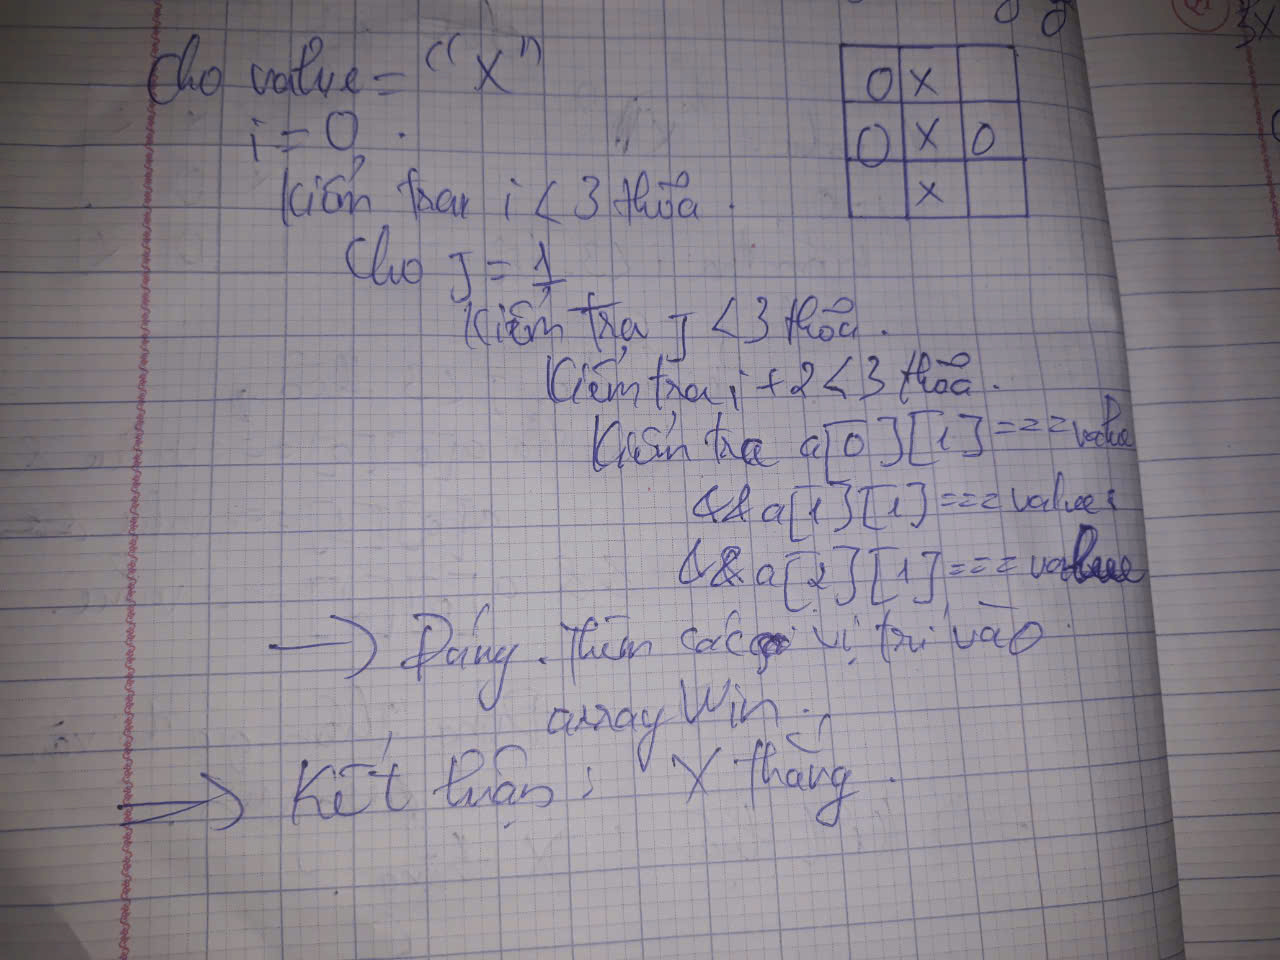 Cho value = "X"
i = 0.
Kiểm tra i < 3 thỏa.
Cho J = 1
Kiểm tra J < 3 thỏa.
Kiểm tra i + 2 < 3 thỏa.
Kiểm tra a[0][1] === value
&& a[1][1] === value
&& a[2][1] === value
→ Đúng. Thêm các vị trí vào
array Win.
→ Kết luận: X thắng.
O X
O X O
X
3x